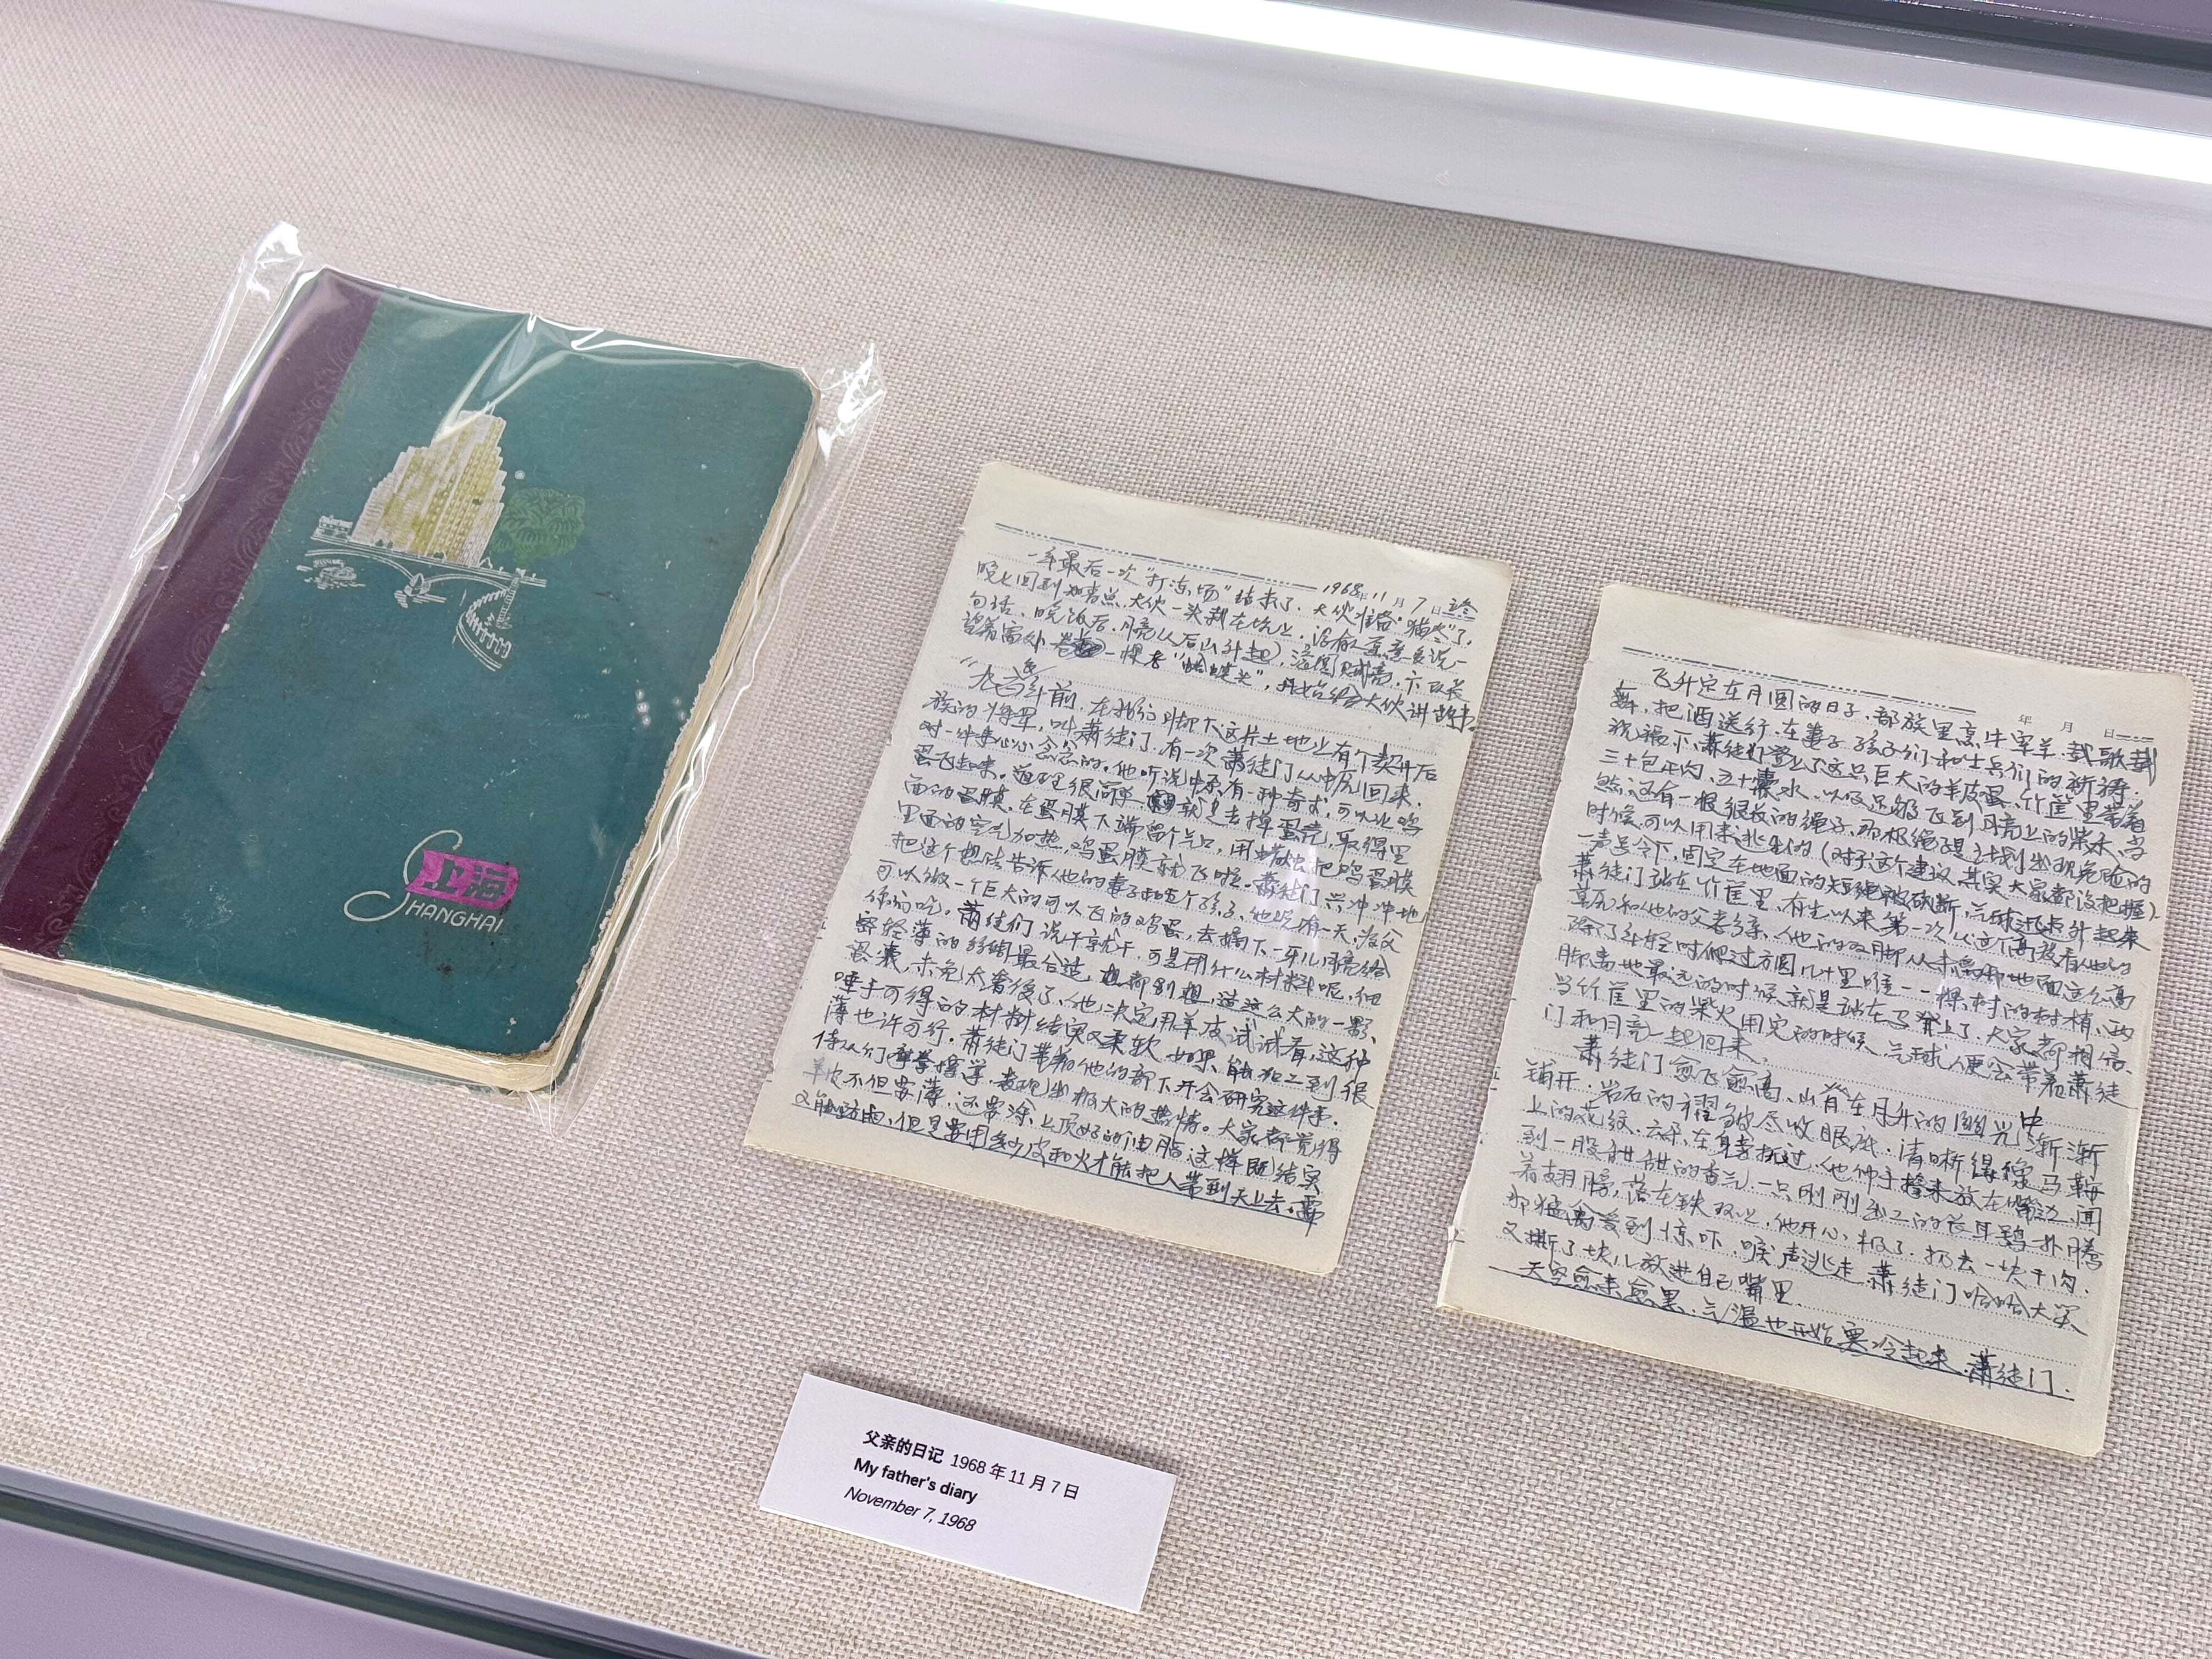 上海
SHANGHAI
1968年11月7日
一年最后一次“打冻场”结束了，大伙准备“猫冬”了，
晚上回到知青点，大伙一头栽在炕上，没有人愿意多说一
句话，晚饭后，月亮从后山升起，滚圆贼亮，
望着窗外 一棵 开始给大伙讲故事
年前，在我们脚下这片土地上有个契丹后
族的将军，叫萧徒门，有一次萧徒门从中原回来，
对一件事心心念念的，他听说中原有一种奇术，可以让鸡
蛋飞起来，道理很简单 就是去掉蛋壳，取得里
面的蛋膜，在蛋膜下端留个气口，用 把鸡蛋膜
里面的空气加热，鸡蛋膜就飞啦。萧徒门兴冲冲地
把这个想法告诉他的妻子和 个孩子，他说有一天，为父
可以做一个巨大的可以飞的鸡蛋，去摘下一牙儿月亮给
你们吃。萧徒们说干就干，可是用什么材料呢，细
密轻薄的丝绸最合适，想都别想，造这么大的一颗
蛋囊，未免太奢侈了，他决定用羊皮试试看，这种
唾手可得的材料结实又柔软，如果能加工到很
薄也许可行。萧徒门带着他的部下开会研究这件事，
侍从们摩拳擦掌，表现出极大的热情。大家都觉得
羊皮不但要薄，还要涂上顶好的油脂，这样既结实
又能防雨，但是要用多少皮和火才能把人带到天上去，需
年 月 日
飞升定在月圆的日子，部族里烹牛宰羊，载歌载
舞，把酒送行，在妻子孩子们和士兵们的祈祷
祝福下，萧徒们登上了这只巨大的羊皮蛋，竹筐里带着
三十包干肉，五十囊水，以及足够飞到月亮上的柴禾，当
然，还有一根很长的绳子，那根绳 计划出现危险的
时候，可以用来逃生的（对于这个建议其实大家都没把握）
一声号令下，固定在地面的短绳被砍断，气球 升起来
萧徒门站在竹筐里，有生以来第一次从这个高度看他的
和他的父老乡亲，他的双脚从未离开地面这么高
除了年轻时爬过方圆几十里唯一一棵 树的树梢，双
脚离地最远的时候就是站在马背上了，大家都相信，
当竹筐里的柴火用完的时候，气球便会带着萧徒
门和月亮一起回来。
萧徒门愈飞愈高，山脊在月升的幽光中渐渐
铺开，岩石的褶皱尽收眼底，清晰得像马鞍
上的花纹，云朵在身旁抚过，他伸手 来放在嘴边，闻
到一股甜甜的香气，一只刚刚出 的长耳鸮扑腾
着翅膀，落在铁 上，他开心极了，扔去一块干肉，
那猛禽受到惊吓，唳声逃走，萧徒门哈哈大笑
又撕了块儿放进自己嘴里。
天空愈来愈黑，气温也开始寒冷起来，萧徒门，
父亲的日记 1968年11月7日
My father's diary
November 7, 1968